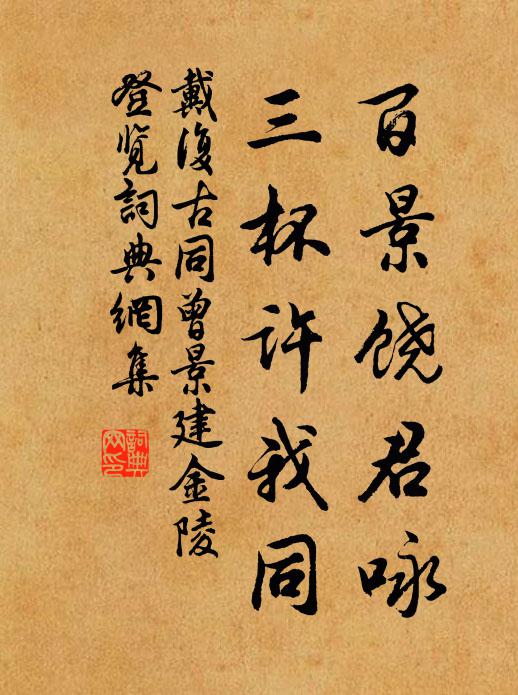 百景饶君咏
三杯许我同
戴復古同曾景建金陵
登览詞典網集
詞典
网印